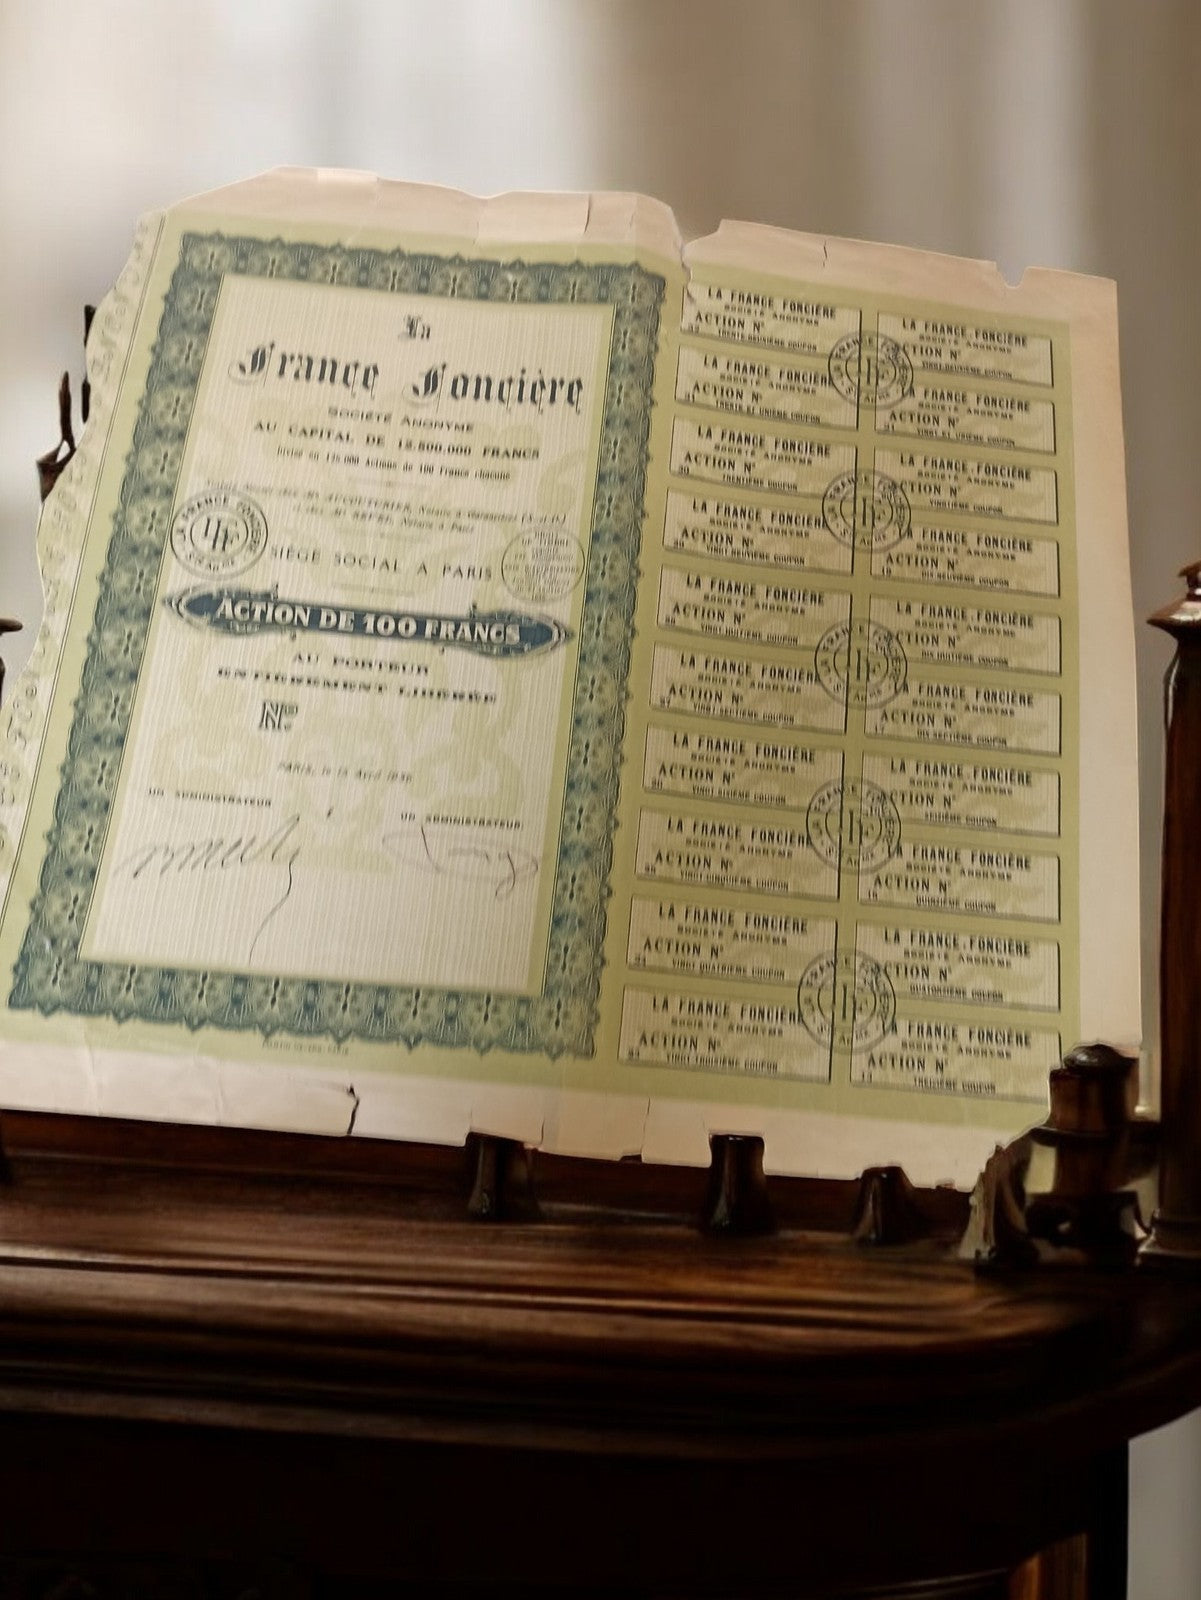 La
France Foncière
SOCIÉTÉ ANONYME
AU CAPITAL DE 12.500.000 FRANCS
Divisé en 125.000 Actions de 100 Francs chacune
Notaire à
Notaire à Paris
SIÈGE SOCIAL A PARIS
LA FRANCE FONCIÈRE
ACTION DE 100 FRANCS
AU PORTEUR
ENTIÈREMENT LIBÉRÉE
Nº
PARIS, le 15 Avril
UN ADMINISTRATEUR
UN ADMINISTRATEUR
LA FRANCE FONCIÈRE
SOCIÉTÉ ANONYME
ACTION Nº
32 TRENTE-DEUXIÈME COUPON
LA FRANCE FONCIÈRE
SOCIÉTÉ ANONYME
ACTION Nº
31 TRENTE ET UNIÈME COUPON
LA FRANCE FONCIÈRE
SOCIÉTÉ ANONYME
ACTION Nº
30 TRENTIÈME COUPON
LA FRANCE FONCIÈRE
SOCIÉTÉ ANONYME
ACTION Nº
VINGT NEUVIÈME COUPON
LA FRANCE FONCIÈRE
SOCIÉTÉ ANONYME
ACTION Nº
VINGT HUITIÈME COUPON
LA FRANCE FONCIÈRE
SOCIÉTÉ ANONYME
ACTION Nº
27 VINGT SEPTIÈME COUPON
LA FRANCE FONCIÈRE
SOCIÉTÉ ANONYME
ACTION Nº
VINGT SIXIÈME COUPON
LA FRANCE FONCIÈRE
SOCIÉTÉ ANONYME
ACTION Nº
VINGT CINQUIÈME COUPON
LA FRANCE FONCIÈRE
SOCIÉTÉ ANONYME
ACTION Nº
VINGT QUATRIÈME COUPON
LA FRANCE FONCIÈRE
SOCIÉTÉ ANONYME
ACTION Nº
VINGT TROISIÈME COUPON
LA FRANCE FONCIÈRE
SOCIÉTÉ ANONYME
ACTION Nº
VINGT DEUXIÈME COUPON
LA FRANCE FONCIÈRE
SOCIÉTÉ ANONYME
ACTION Nº
21 VINGT ET UNIÈME COUPON
LA FRANCE FONCIÈRE
SOCIÉTÉ ANONYME
ACTION Nº
VINGTIÈME COUPON
LA FRANCE FONCIÈRE
SOCIÉTÉ ANONYME
ACTION Nº
19 DIX NEUVIÈME COUPON
LA FRANCE FONCIÈRE
SOCIÉTÉ ANONYME
ACTION Nº
DIX HUITIÈME COUPON
LA FRANCE FONCIÈRE
SOCIÉTÉ ANONYME
ACTION Nº
17 DIX SEPTIÈME COUPON
LA FRANCE FONCIÈRE
SOCIÉTÉ ANONYME
ACTION Nº
SEIZIÈME COUPON
LA FRANCE FONCIÈRE
SOCIÉTÉ ANONYME
ACTION Nº
15 QUINZIÈME COUPON
LA FRANCE FONCIÈRE
SOCIÉTÉ ANONYME
ACTION Nº
QUATORZIÈME COUPON
LA FRANCE FONCIÈRE
SOCIÉTÉ ANONYME
ACTION Nº
13 TREIZIÈME COUPON